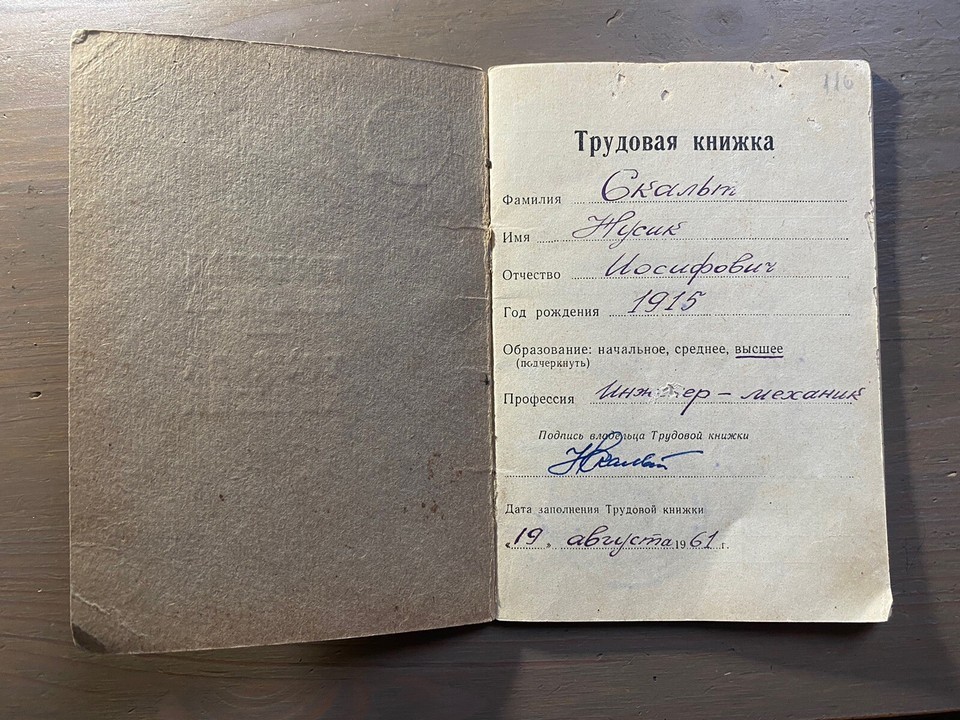 116
Трудовая книжка
Фамилия Скальт
Имя Нусик
Отчество Иосифович
Год рождения 1915
Образование: начальное, среднее, высшее
(подчеркнуть)
Профессия Инженер - механик
Подпись владельца Трудовой книжки
НСкальт
Дата заполнения Трудовой книжки
„19„ августа 1961 г.